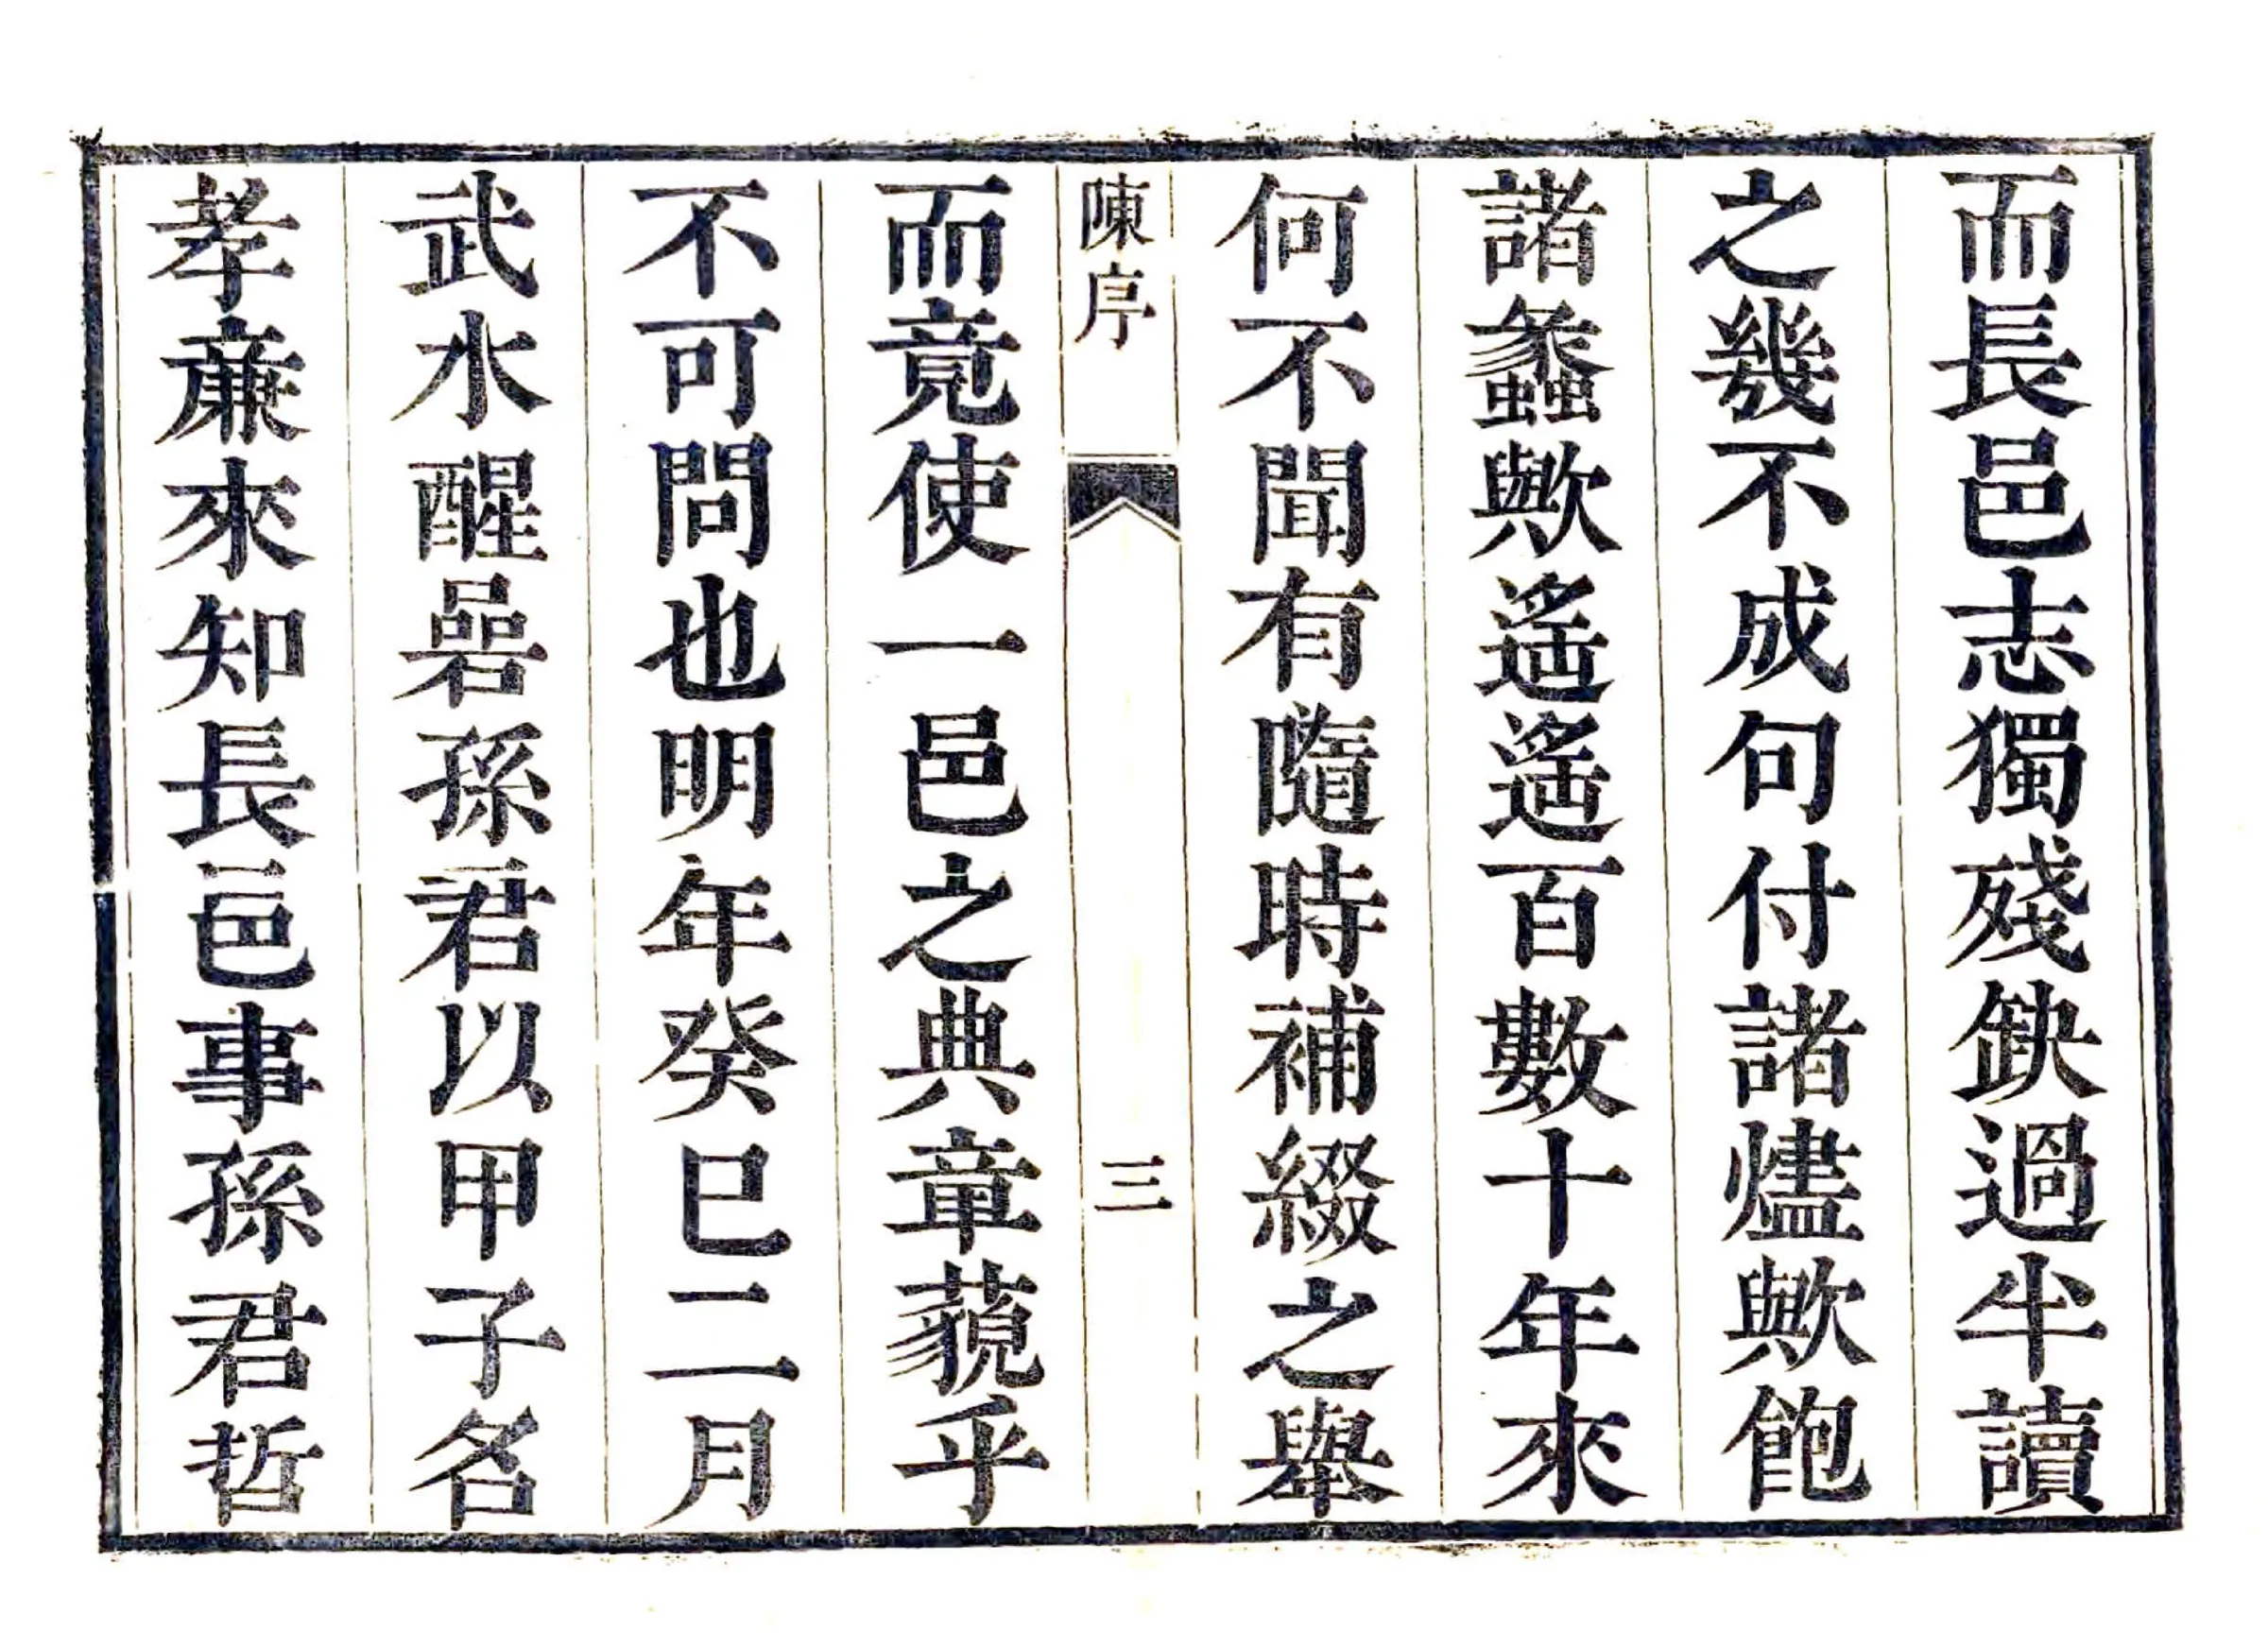 而長邑志獨殘缺過半讀
之幾不成句付諸燼歟飽
諸蠡歟遙遙百數十年來
何不聞有隨時補綴之舉
陳序
三
而竟使一邑之典章藐乎
不可問也明年癸巳二月
武水醒喦孫君以甲子名
孝廉來知長邑事孫君哲